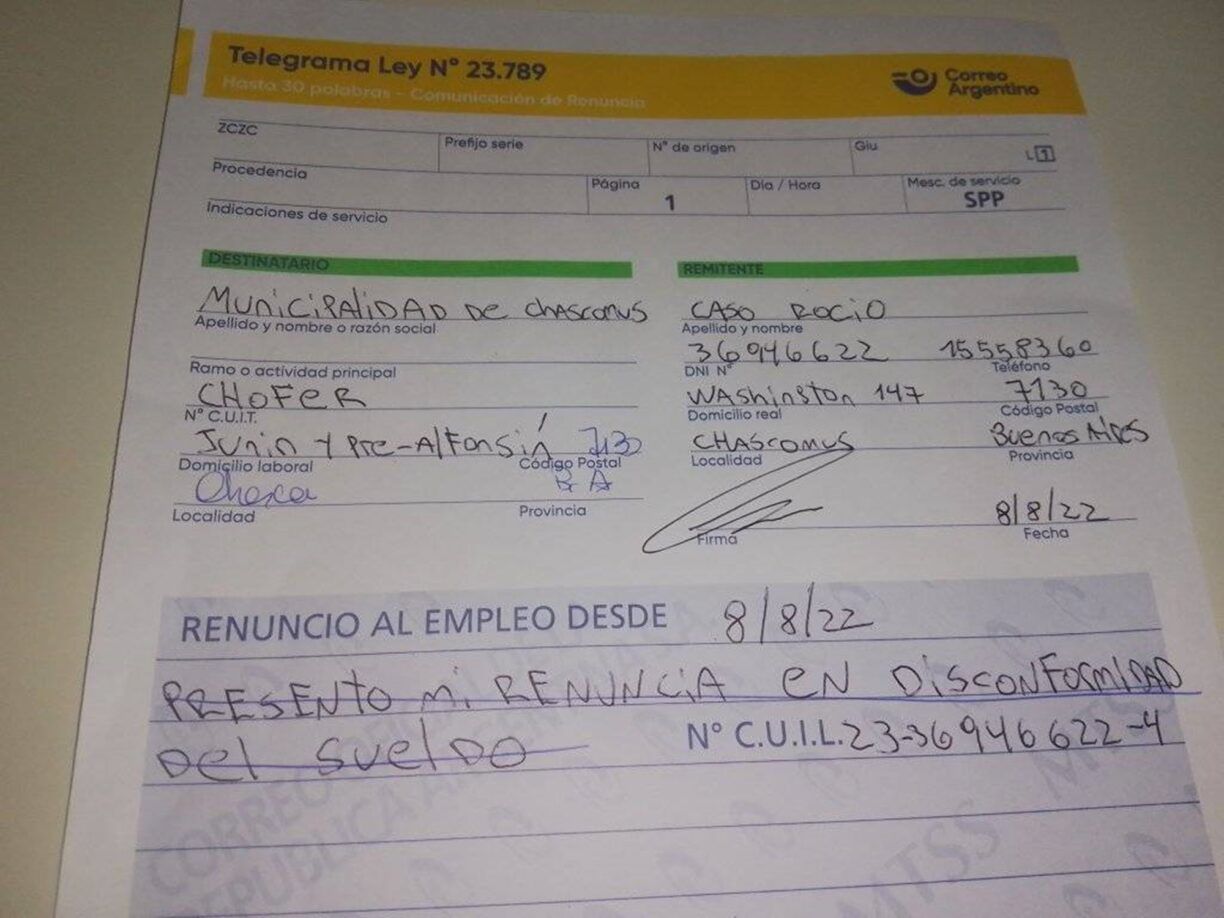 Telegrama Ley Nº 23.789
Hasta 30 palabras - Comunicación de Renuncia
Correo
Argentino
ZCZC
Prefijo serie
Nº de origen
Giu
L 1
Procedencia
Página
1
Día / Hora
Mesc. de servicio
SPP
Indicaciones de servicio
DESTINATARIO
MUNICIPALIDAD DE CHASCOMUS
Apellido y nombre o razón social
Ramo o actividad principal
CHOFER
Nº C.U.I.T.
Junin y Pre-Alfonsín 7130
Domicilio laboral
Código Postal
B A
Localidad
Provincia
REMITENTE
CASO ROCIO
Apellido y nombre
36946622 15558360
DNI Nº
Teléfono
WAShinSton 147 7130
Domicilio real
Código Postal
CHASCOMUS Buenos Aires
Localidad
Provincia
8/8/22
Firma
Fecha
RENUNCIO AL EMPLEO DESDE 8/8/22
PRESENTO Mi RENUNCIA EN DISCONFORMIDAD
DEL SUELDO Nº C.U.I.L. 23-36946622-4
CORREO OFICIAL DE LA
REPUBLICA ARGENTINA S.A.
MTSS
MTSS